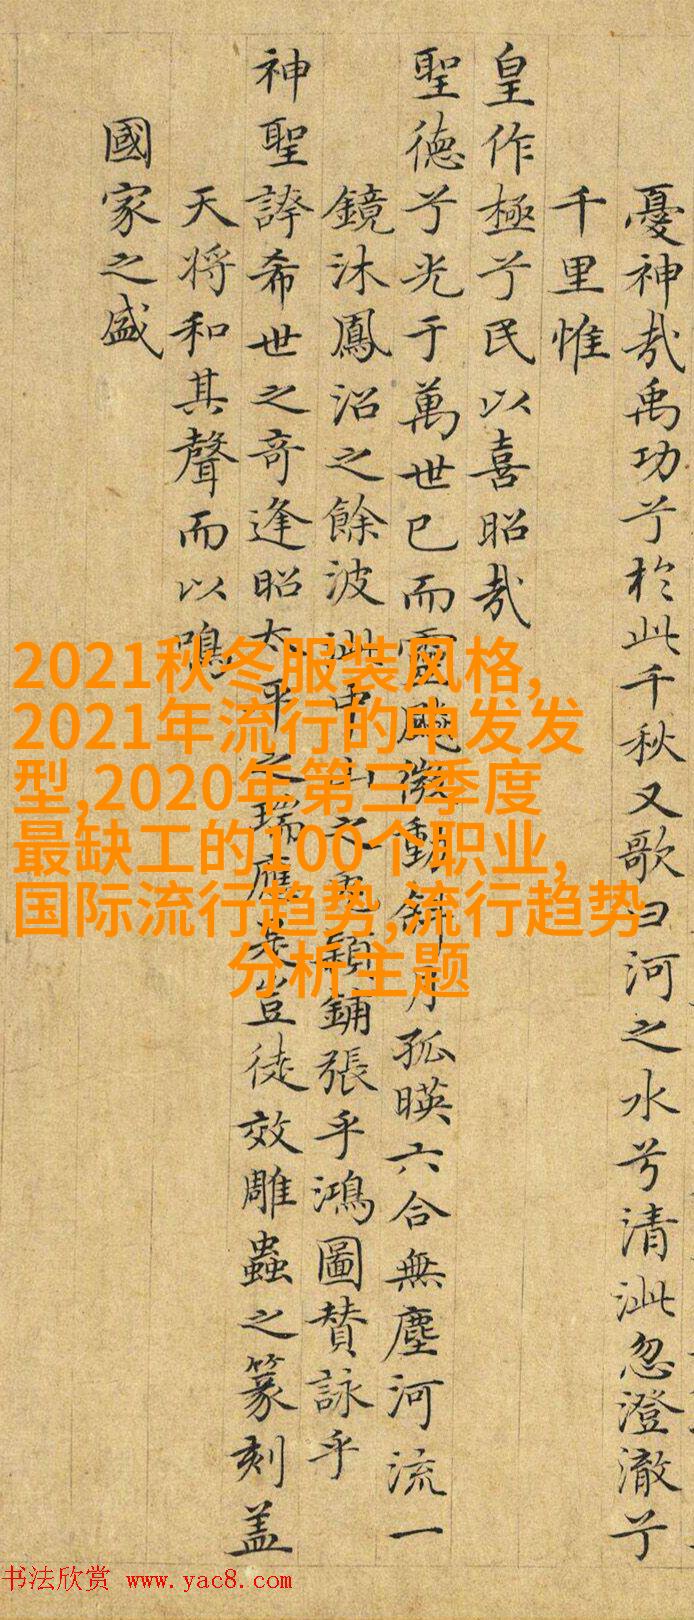 憂神哉禹功兮於此千秋又歌曰河之水兮清泚忽澄澈兮
千里惟
皇作極兮民以喜昭哉
聖德兮光于萬世已而靈飈微動斜月孤暎六合無塵河流一
鏡沐鳳沼之餘波泚中山之兔穎鋪張乎鴻圖賛詠乎
神聖誇希世之奇逢昭太平之瑞應是豈徒效雕蟲之篆刻盖
天将和其聲而以鳴
國家之盛
2021秋冬服装风格,
2021年流行的中发发
型,2020年第三季度
最缺工的100个职业,
国际流行趋势,流行趋势
分析主题
书法欣赏 www.yac8.com